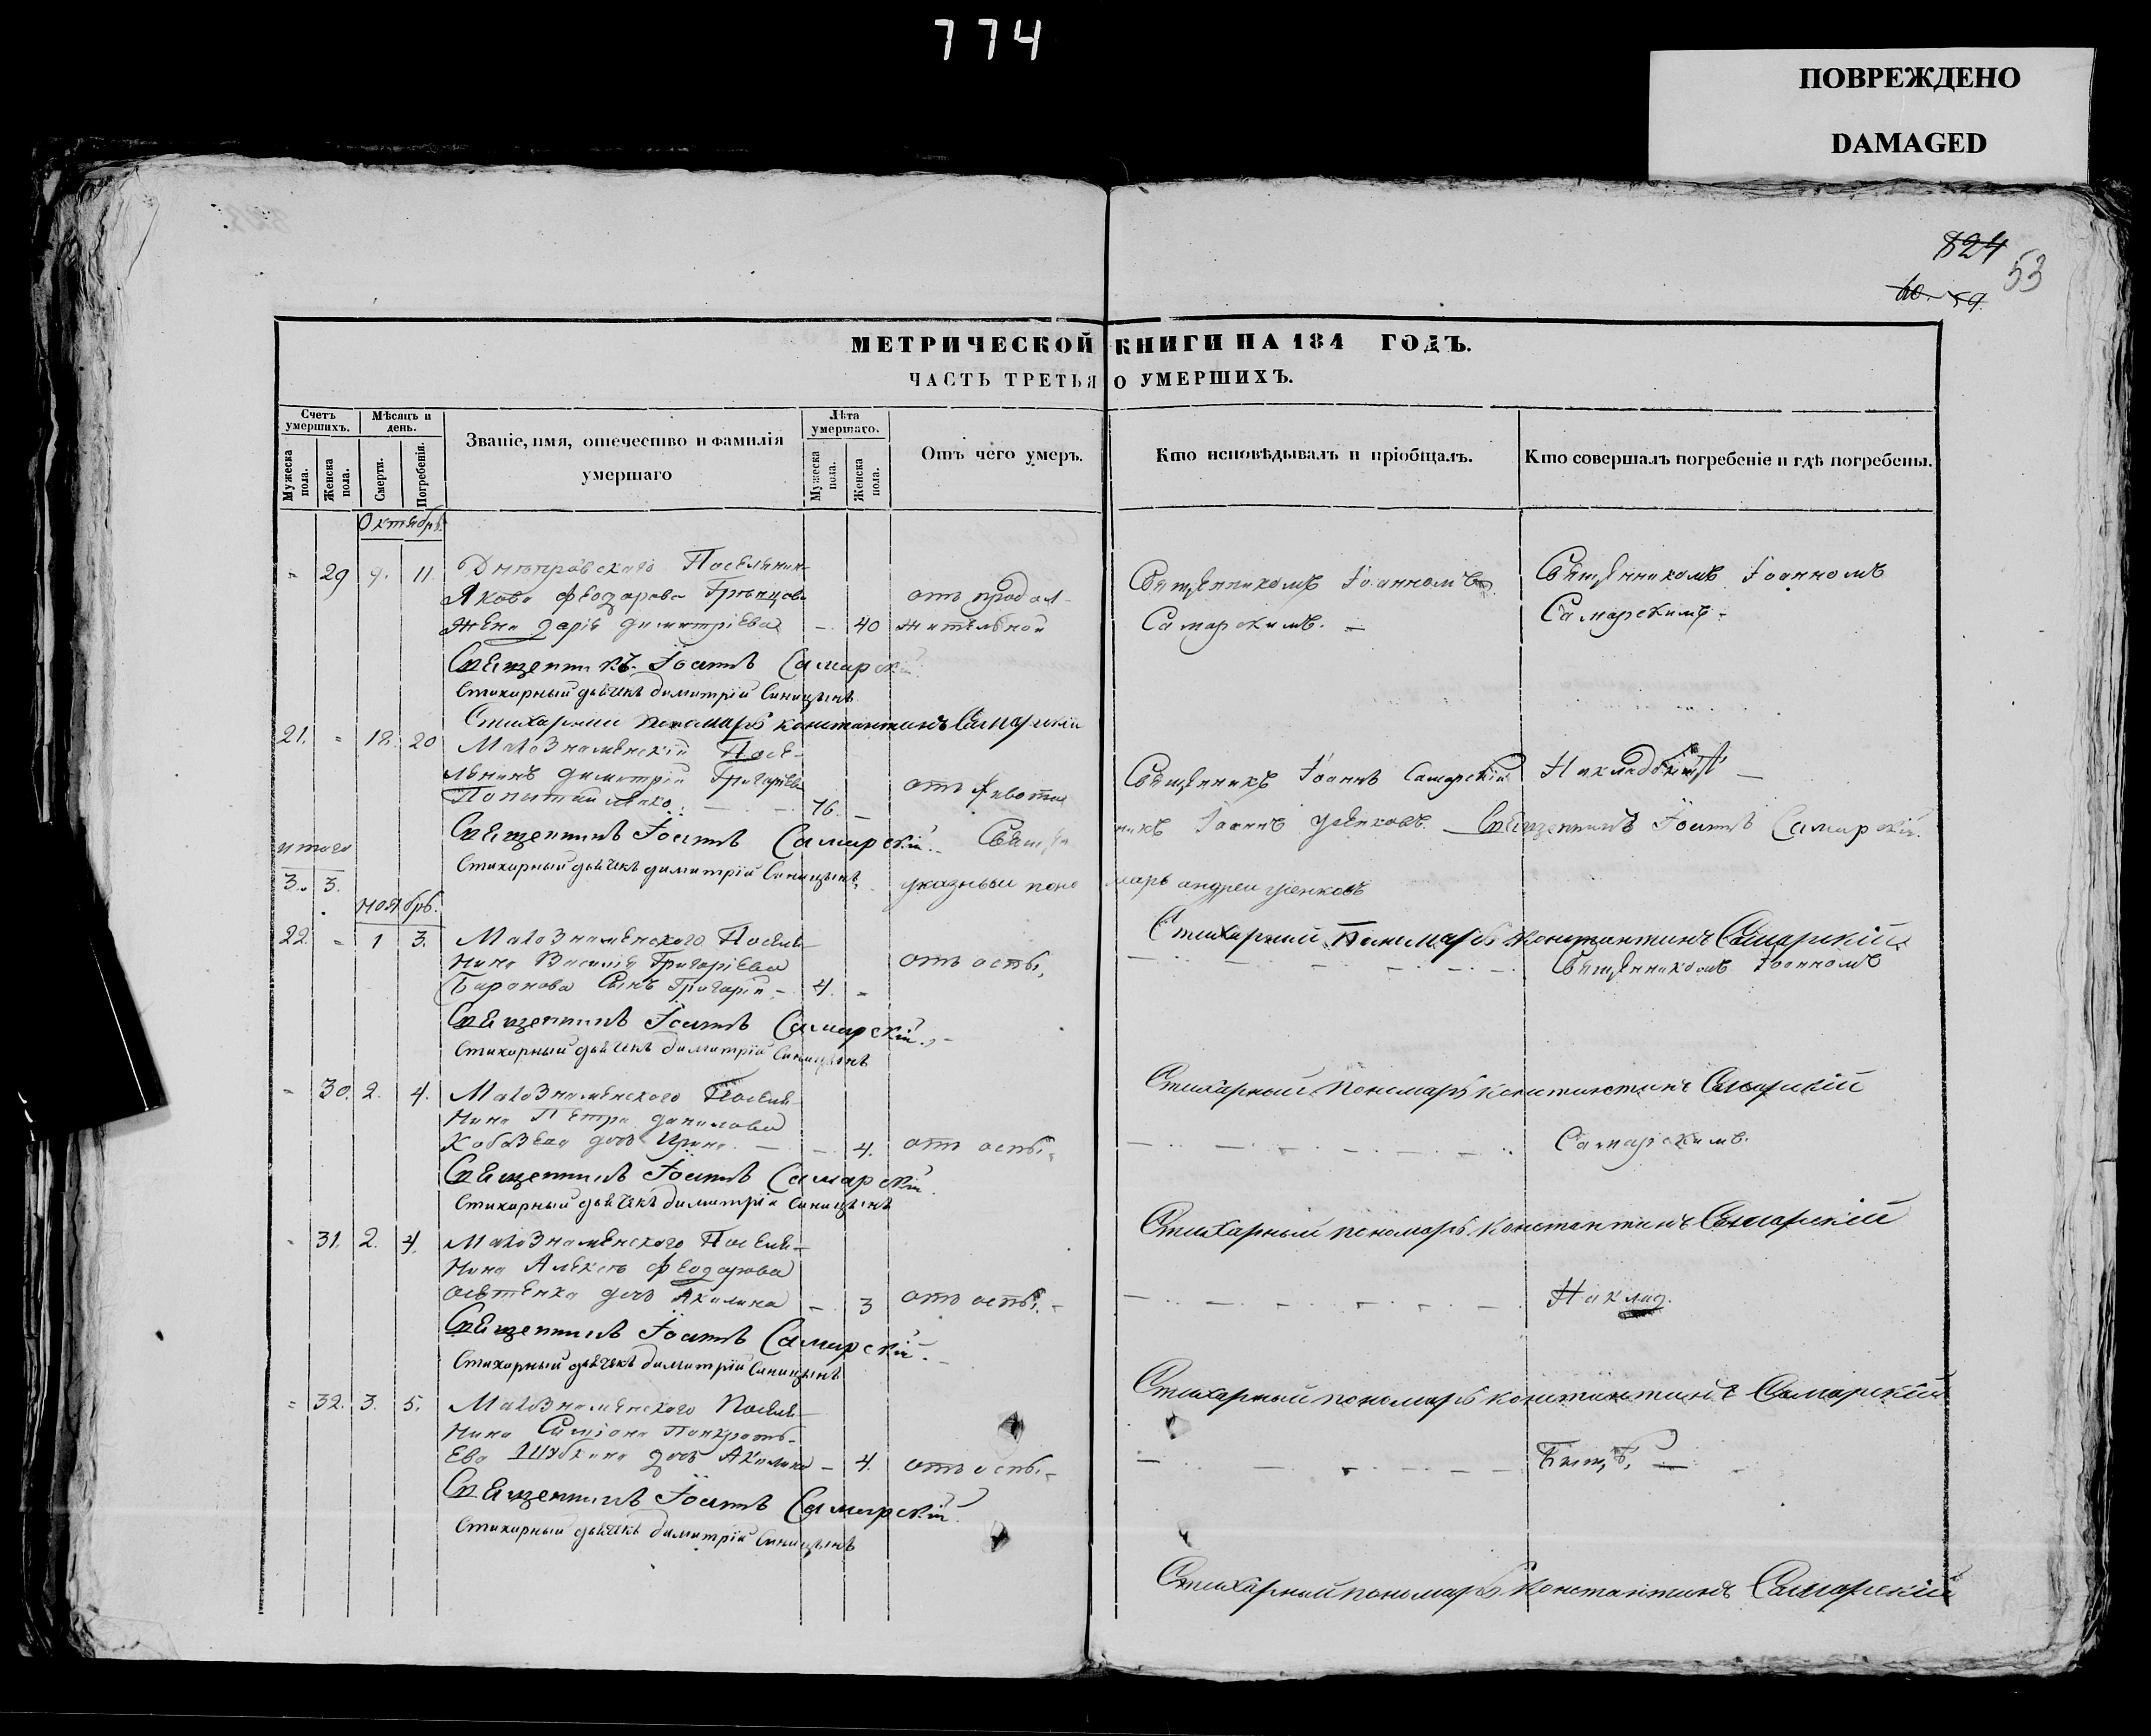 774
ПОВРЕЖДЕНО
DAMAGED
824
53
МЕТРИЧЕСКОЙ КНИГИ НА 184 ГОДЪ.
ЧАСТЬ ТРЕТЬЯ О УМЕРШИХЪ.
Счетъ умершихъ.
Мужеска пола.
Женска пола.
Мѣсяцъ и день.
Смерти.
Погребенія.
Званіе, имя, отечество и фамилія умершаго
Лѣта умершаго.
Мужеска пола.
Женска пола.
Отъ чего умеръ.
Кто исповѣдывалъ и пріобщалъ.
Кто совершалъ погребеніе и гдѣ погребены.
Октябрь.
29 9. 11. Днѣпровскаго Поселянин
Якова Феодорова
Жена Дарія Димитріева 40 отъ продолжительной
Священникомъ Іоанномъ
Самарскимъ.
Священникомъ Іоанномъ
Самарскимъ.
Священникъ Іоаннъ Самарскій
Стихарный дьячекъ Димитрій Синицынъ
Стихарный пономарь Константинъ Самарскій
21. 18. 20 Малознаменскій Посе-
лянинъ Димитрій Григорьевъ
76. отъ живота
Священникъ Іоаннъ Самарскій
Священникъ Іоаннъ Самарскій. Священ
никъ Іоаннъ Священникъ Іоаннъ Самарскій.
итого
Стихарный дьячекъ Димитрій Синицынъ
3. 3. указный пономарь Андрей
Ноябрь.
Стихарный Пономарь Константинъ Самарскій
22. 1 3. Малознаменскаго Поселя-
нина Василія Григоріева
Баранова Сынъ Григорій 4. отъ оспы.
Священникомъ Іоанномъ
Священникъ Іоаннъ Самарскій.
Стихарный дьячекъ Димитрій Синицынъ
Стихарный пономарь Константинъ Самарскій
30. 2. 4. Малознаменскаго Поселя-
нина Петра Данилова
дочь Ирина 4. отъ оспы.
Самарскимъ.
Священникъ Іоаннъ Самарскій.
Стихарный дьячекъ Димитрій Синицынъ
Стихарный пономарь Константинъ Самарскій
31. 2. 4. Малознаменскаго Поселя-
нина Алексѣя Феодорова
дочь Акилина 3 отъ оспы.
На клад.
Священникъ Іоаннъ Самарскій.
Стихарный дьячекъ Димитрій Синицынъ
Стихарный пономарь Константинъ Самарскій
32. 3. 5. Малознаменскаго Поселя-
нина Симіона Панкрать-
ева дочь Акилина 4. отъ оспы
Священникъ Іоаннъ Самарскій.
Стихарный дьячекъ Димитрій Синицынъ
Стихарный пономарь Константинъ Самарскій